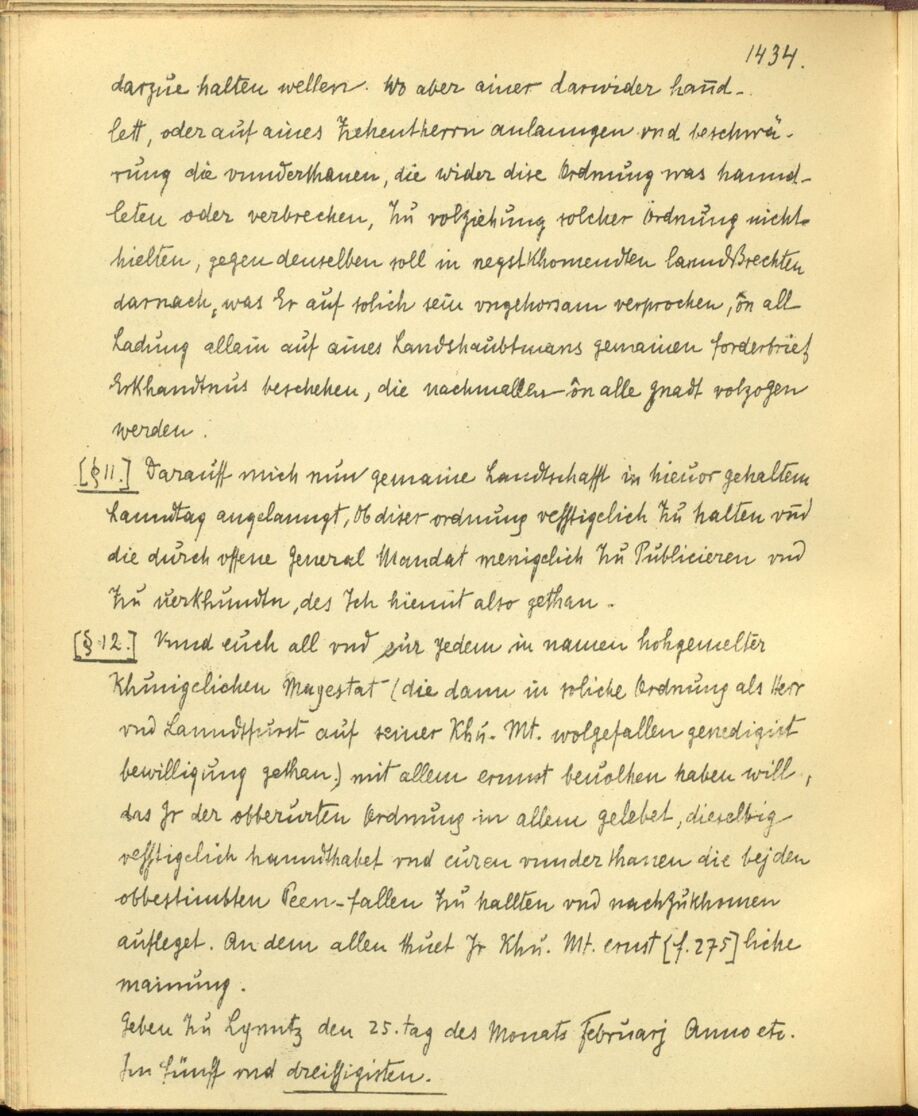 1434.
darzue halten wellen. Wo aber ainer darwider hannd-
lett, oder auf aines Zehentherrn anlanngen vnd beschwä-
rung die vnnderthanen, die wider dise Ordnung was hannd-
leten oder verbrechen, Zu volziehung solcher Ordnung nicht
hielten, gegen denselben soll in negstkhomendten lanndßrechten
darnach, was Er auf solich sein vngehorsam versprochen, ôn all
Ladung allain auf aines Landshaubtmans gemainen forderbrief
Erkhandtnus beschehen, die nachmallen ôn alle gnadt volzogen
werden.
[§ 11.] Darauff mich nun gemaine Landtschafft in hieuor gehaltem
Lanndtag angelanngt, Ob diser ordnung vesstigelich Zu halten vnd
die durch offene General Mandat menigclich Zu Publicieren vnd
Zu verkhundtn, des Ich hiemit also gethan.
[§ 12.] Vnnd euch all vnd eur yedem in namen hohgemelter
Khunigclichen Magestat (die dann in soliche Ordnung als Herr
vnd Lanndtfürst auf seiner Khu. Mt. wolgefallen genedigist
bewilligung gethan) mit allem ernnst beuolhen haben will,
das Ir der obberurten Ordnung in allem gelebet, dieselbig
vesstigclich hanndthabet vnd euren vnnderthanen die bej den
obbestimbten Peen-fallen Zu hallten vnd nachZukhomen
aufleget. An dem allen thuet Ir Khu. Mt. ernst [f. 275] liche
mainung.
Geben Zu Lynntz den 25. tag des Monats Februarj Anno etc.
Im fünff vnd dreissigisten.